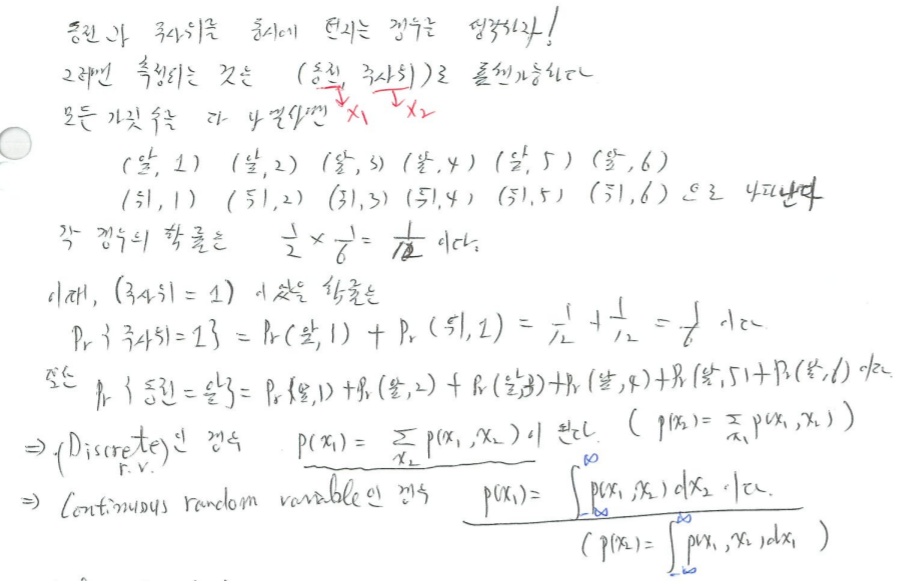 동전과 주사위를 동시에 던지는 경우를 생각하자!
그러면 측정되는 것은 (동전, 주사위)로 표현가능하다
모든 가짓수를 다 나열하면 x₁ x₂
(앞, 1) (앞, 2) (앞, 3) (앞, 4) (앞, 5) (앞, 6)
(뒤, 1) (뒤, 2) (뒤, 3) (뒤, 4) (뒤, 5) (뒤, 6) 으로 나타난다
각 경우의 확률은 1/2 × 1/6 = 1/12 이다.
이때, (주사위 = 1) 이 확률은
Pr{주사위=1} = Pr(앞, 1) + Pr(뒤, 1) = 1/12 + 1/12 = 1/6 이다
또는 Pr{동전=앞} = Pr(앞,1) + Pr(앞,2) + Pr(앞,3) + Pr(앞,4) + Pr(앞,5) + Pr(앞,6) 이다.
⇒ (Discrete r.v.)인 경우 p(x₁) = Σ_{x₂} p(x₁, x₂) 이 된다. ( p(x₂) = Σ_{x₁} p(x₁, x₂) )
⇒ Continuous random variable인 경우 p(x₁) = ∫_{-∞}^{∞} p(x₁, x₂) dx₂ 이다.
( p(x₂) = ∫_{-∞}^{∞} p(x₁, x₂) dx₁ )